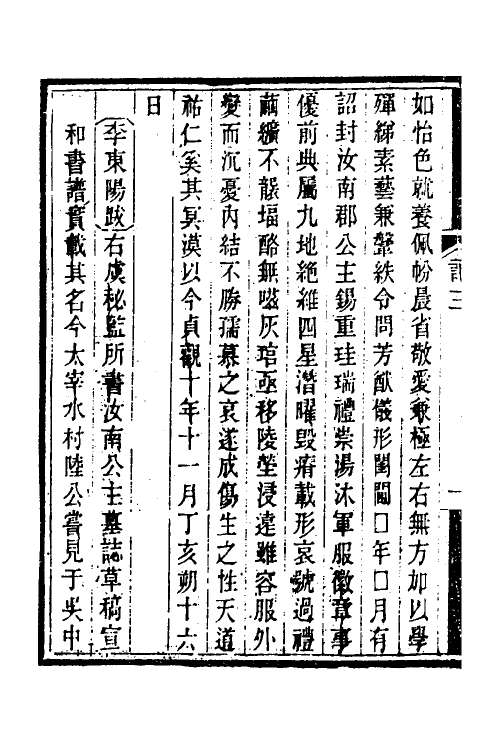 如怡色就養佩帉晨省敬愛兼極左右無方加以學
殫綈素藝兼鞶紩令問芳猷儀形閨閫囗年囗月有
詔封汝南郡公主錫重珪瑞禮崇湯沐車服徽章事
優前典屬九地絶維四星潛曜毀瘠載形哀號過禮
繭纊不襲塩酪無嗞灰琯亟移陵塋浸遠雖容服外
變而沉憂內結不勝孺慕之哀遂成傷生之性天道
祐仁奚其冥漠以今貞觀十年十一月丁亥朔十六
日
李東陽跋右虞秘監所書汝南公主墓誌草稿宣
和書譜實載其名今太宰水村陸公嘗見于吳中
三
一